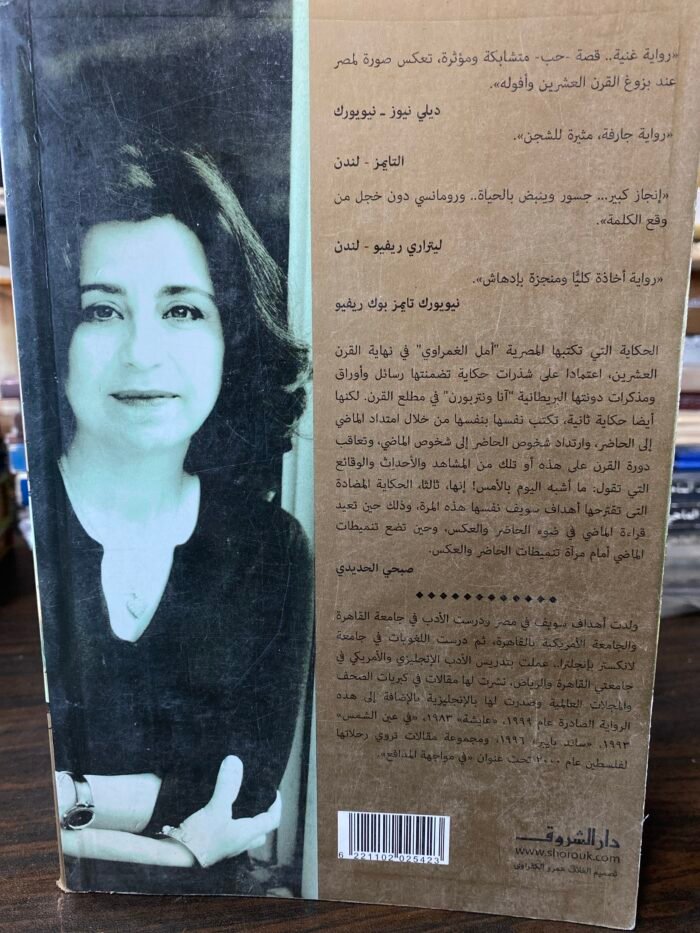 «رواية غنية.. قصة -حب- متشابكة ومؤثرة، تعكس صورة لمصر
عند بزوغ القرن العشرين وأفوله».
ديلي نيوز ـ نيويورك
«رواية جارفة، مثيرة للشجن».
التايمز - لندن
«إنجاز كبير... جسور وينبض بالحياة.. ورومانسي دون خجل من
وقع الكلمة».
ليتراري ريفيو - لندن
«رواية أخاذة كليًّا ومنجزة بإدهاش».
نيويورك تايمز بوك ريفيو
الحكاية التي تكتبها المصرية "أمل الغمراوي" في نهاية القرن
العشرين، اعتمادا على شذرات حكاية تضمنتها رسائل وأوراق
ومذكرات دونتها البريطانية "آنا ونتربورن" في مطلع القرن. لكنها
أيضا حكاية ثانية، تكتب نفسها بنفسها من خلال امتداد الماضي
إلى الحاضر، وارتداد شخوص الحاضر إلى شخوص الماضي، وتعاقب
دورة القرن على هذه أو تلك من المشاهد والأحداث والوقائع
التي تقول: ما أشبه اليوم بالأمس! إنها، ثالثا، الحكاية المضادة
التى تقترحها أهداف سويف نفسها هذه المرة، وذلك حين تعيد
قراءة الماضي في ضوء الحاضر والعكس، وحين تضع تنميطات
الماضي أمام مرآة تنميطات الحاضر والعكس.
صبحي الحديدي
ولدت أهداف سويف في مصر ودرست الأدب في جامعة القاهرة
والجامعة الأمريكية بالقاهرة، ثم درست اللغويات في جامعة
لانكستر بإنجلترا.. عملت بتدريس الأدب الإنجليزي والأمريكي في
جامعتي القاهرة والرياض، نشرت لها مقالات في كبريات الصحف
والمجلات العالمية وصدرت لها بالإنجليزية بالإضافة إلى هذه
الرواية الصادرة عام ١٩٩٩، «عايشة» ١٩٨٣، «في عين الشمس»
١٩٩٣، «ساند بايبر» ١٩٩٦، ومجموعة مقالات تروي رحلاتها
لفلسطين عام ٢٠٠٠ تحت عنوان «في مواجهة المدافع».
دار الشروق
www.shorouk.com
تصميم الغلاف: عمرو الكفراوي
6 221102 025423